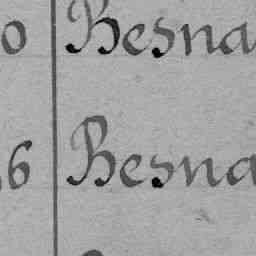 0 Besna
6 Besna